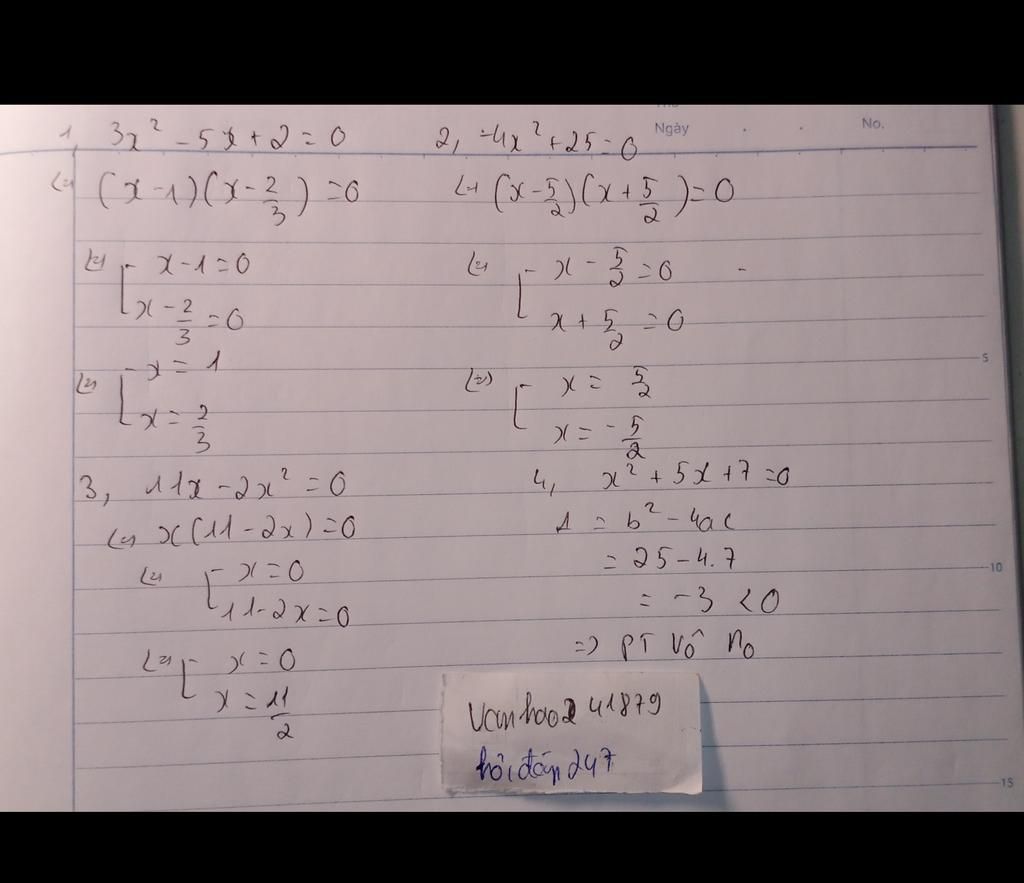 Ngày No.
1, 3x² - 5x + 2 = 0
<=> (x - 1)(x - 2/3) = 0
<=> [ x - 1 = 0
x - 2/3 = 0
<=> [ x = 1
x = 2/3
2, -4x² + 25 = 0
<=> (x - 5/2)(x + 5/2) = 0
<=> [ x - 5/2 = 0
x + 5/2 = 0
<=> [ x = 5/2
x = -5/2
3, 11x - 2x² = 0
<=> x(11 - 2x) = 0
<=> [ x = 0
11 - 2x = 0
<=> [ x = 0
x = 11/2
4, x² + 5x + 7 = 0
Δ = b² - 4ac
= 25 - 4.7
= -3 < 0
=> PT vô no
vanhao241879
hỏi đáp 247
5
10
15